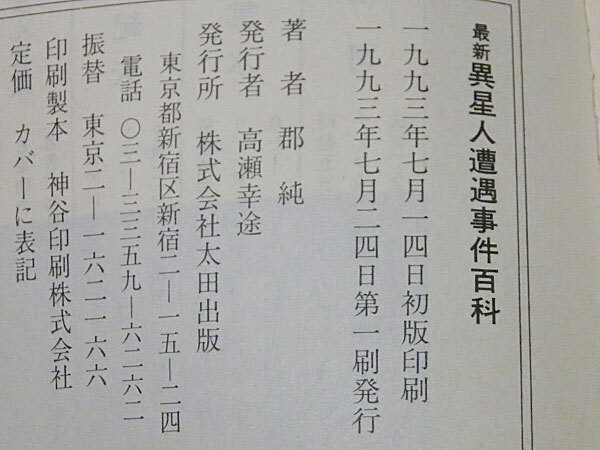 最新 異星人遭遇事件百科
一九九三年七月一四日初版印刷
一九九三年七月二四日第一刷発行
著者 郡純
発行者 高瀬幸途
発行所 株式会社太田出版
東京都新宿区新宿二―一五―二四
電話 〇三―三三五九―六二六二
振替 東京二―一六二一六六
印刷製本 神谷印刷株式会社
定価 カバーに表記